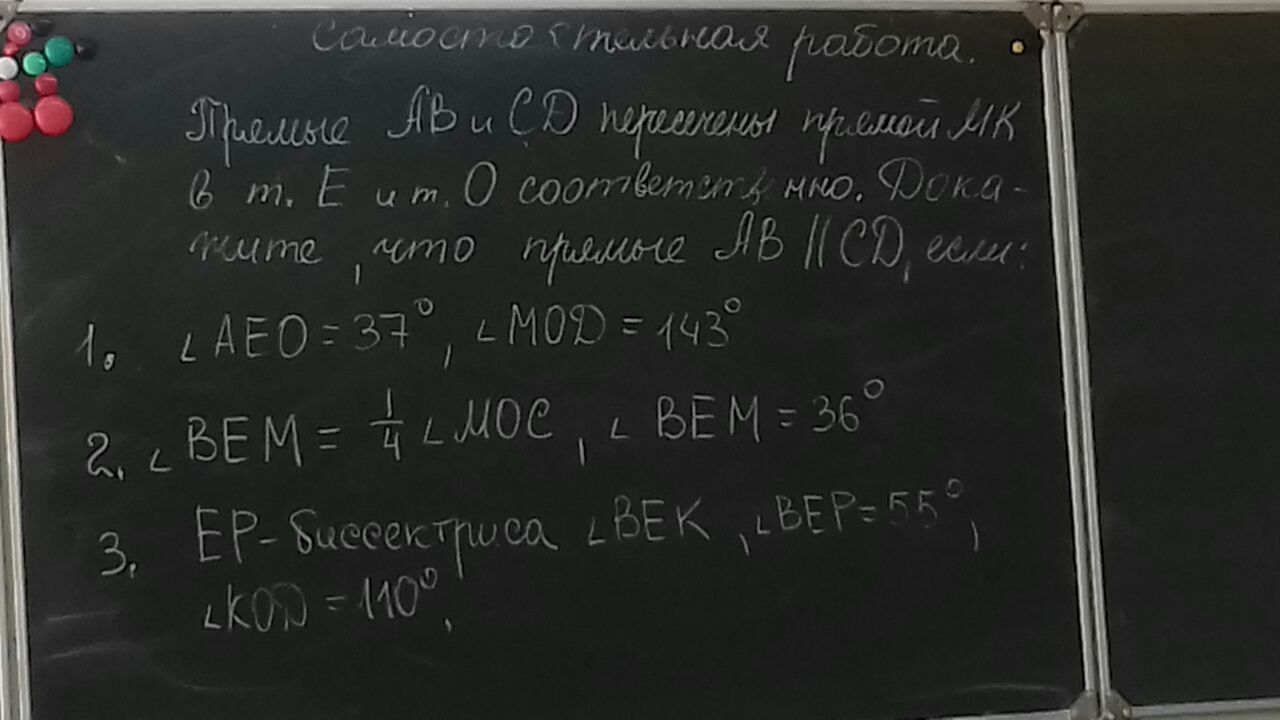 Самостоятельная работа.
Прямые AB и CD пересечены прямой МК
в т. Е и т. О соответственно. Дока-
жите, что прямые AB || CD, если:
1. ∠AEO = 37°, ∠MOD = 143°
2. ∠BEM = 1/4 ∠MOC, ∠BEM = 36°
3. EP - биссектриса ∠BEK, ∠BEP = 55°,
∠KOD = 110°,